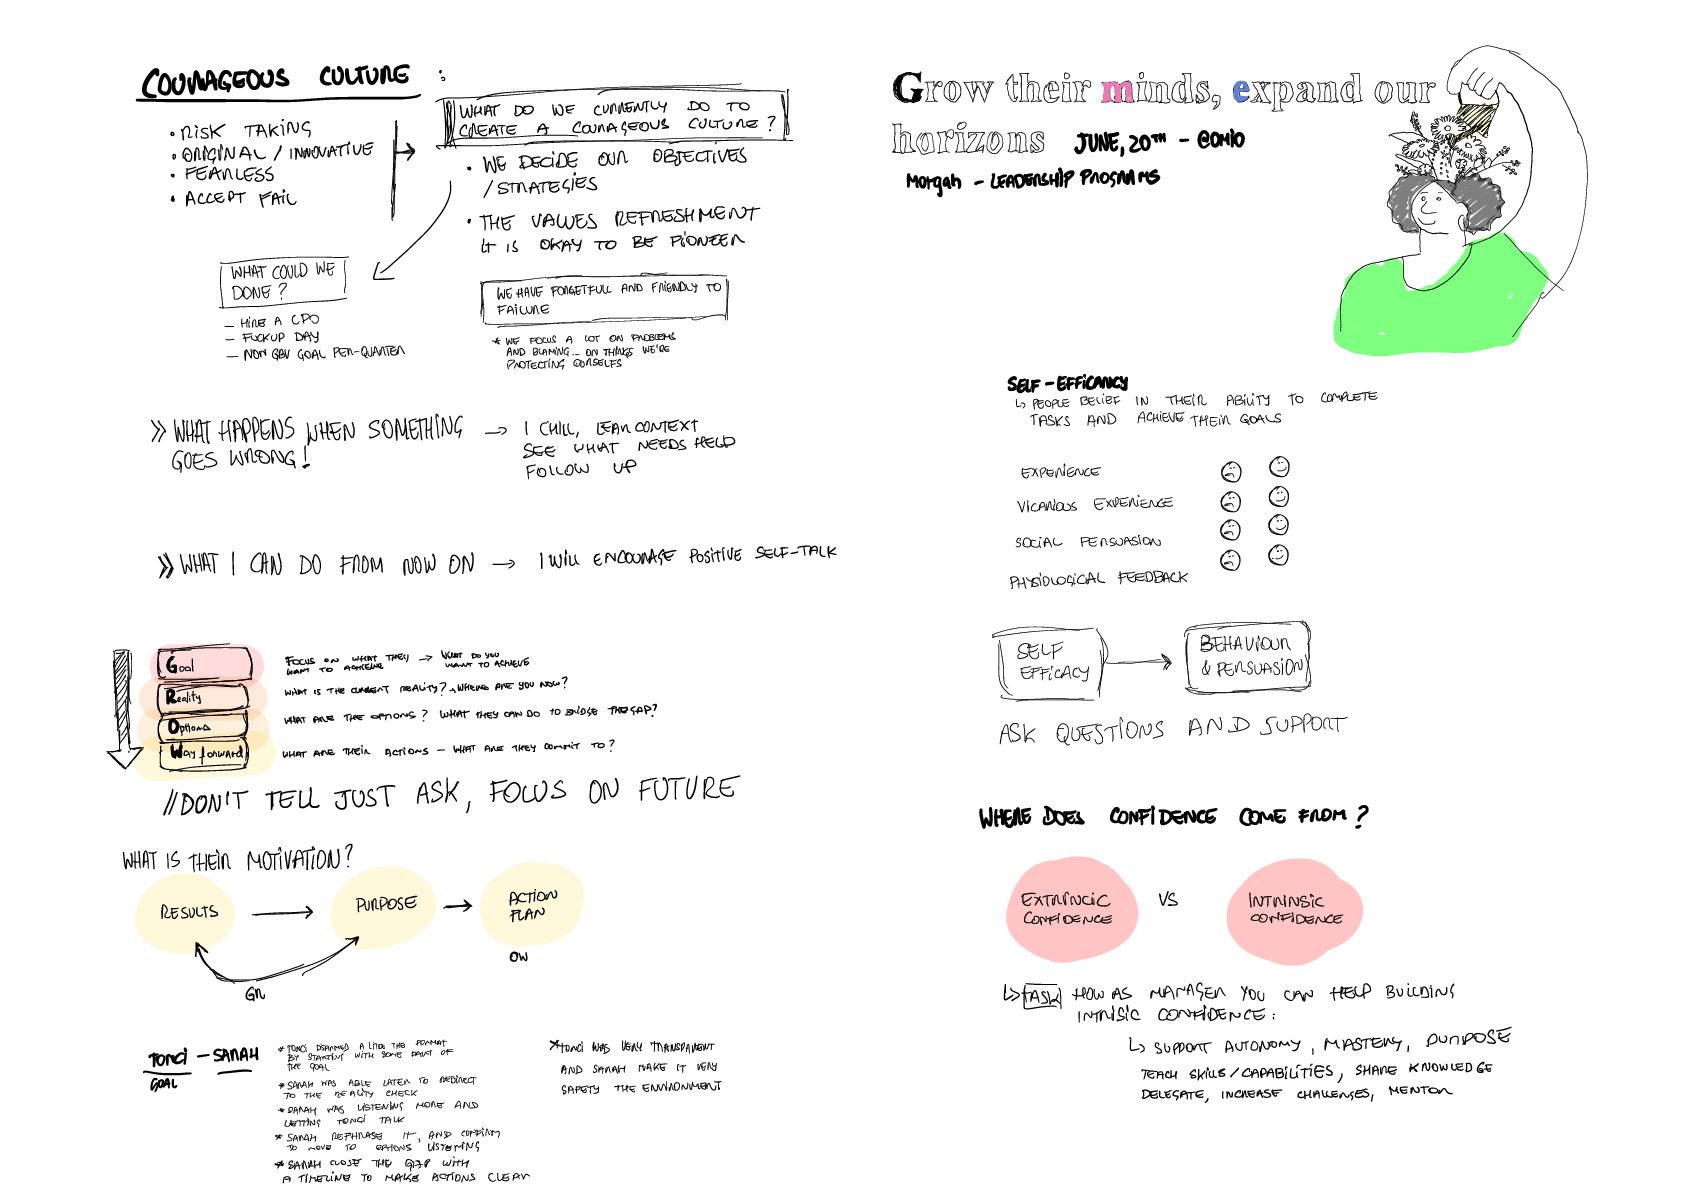 COURAGEOUS CULTURE :
• RISK TAKING
• ORIGINAL / INNOVATIVE
• FEARLESS
• ACCEPT FAIL
WHAT DO WE CURRENTLY DO TO
CREATE A COURAGEOUS CULTURE ?
• WE DECIDE OUR OBJECTIVES
/ STRATEGIES
• THE VALUES REFRESHMENT
IT IS OKAY TO BE PIONEER
WHAT COULD WE
DONE ?
– HIRE A CPO
– FUCKUP DAY
– NON GBV GOAL PER-QUARTER
WE HAVE FORGETFULL AND FRIENDLY TO
FAILURE
* WE FOCUS A LOT ON PROBLEMS
AND BLAMING... ON THINGS WE'RE
PROTECTING OURSELFS
>> WHAT HAPPENS WHEN SOMETHING
GOES WRONG!
→ I CHILL, LEAN CONTEXT
SEE WHAT NEEDS HELD
FOLLOW UP
>> WHAT I CAN DO FROM NOW ON → I WILL ENCOURAGE POSITIVE SELF-TALK
Goal
FOCUS ON WHAT THEY → WHAT DO YOU
WANT TO ACHIEVE WANT TO ACHIEVE
Reality
WHAT IS THE CURRENT REALITY? WHERE ARE YOU NOW?
Options
WHAT ARE THE OPTIONS? WHAT THEY CAN DO TO BRIDGE THE GAP?
Way forward
WHAT ARE THEIR ACTIONS – WHAT ARE THEY COMMIT TO?
// DON'T TELL JUST ASK, FOCUS ON FUTURE
WHAT IS THEIR MOTIVATION?
RESULTS → PURPOSE → ACTION
PLAN
OW
GR
TONCI – SARAH
GOAL
* TONCI THE FORMAT
BY STARTING WITH SOME PART OF
THE GOAL
* SARAH WAS ABLE LATER TO REDIRECT
TO THE REALITY CHECK
* SARAH WAS LISTENING MORE AND
LETTING TONCI TALK
* SARAH REPHRASE IT, AND CONFIRM
TO MOVE TO OPTIONS LISTENING
* SARAH CLOSE THE GAP WITH
A TIMELINE TO MAKE ACTIONS CLEAR
* TONCI WAS VERY TRANSPARENT
AND SARAH MAKE IT VERY
SAFETY THE ENVIRONMENT
Grow their minds, expand our
horizons JUNE, 20TH – @OMIO
Morgan – LEADERSHIP PROGRAMS
SELF - EFFICANCY
↳ PEOPLE BELIEF IN THEIR ABILITY TO COMPLETE
TASKS AND ACHIEVE THEIR GOALS
EXPERIENCE
VICARIOUS EXPERIENCE
SOCIAL PERSUASION
PHYSIOLOGICAL FEEDBACK
SELF
EFFICACY
BEHAVIOUR
& PERSUASION
ASK QUESTIONS AND SUPPORT
WHERE DOES CONFIDENCE COME FROM ?
EXTRINCIC
CONFIDENCE
VS
INTRINSIC
CONFIDENCE
↳ TASK HOW AS MANAGER YOU CAN HELP BUILDING
INTRISIC CONFIDENCE :
↳ SUPPORT AUTONOMY, MASTERY, PURPOSE
TEACH SKILLS/CAPABILITIES, SHARE KNOWLEDGE
DELEGATE, INCREASE CHALLENGES, MENTOR